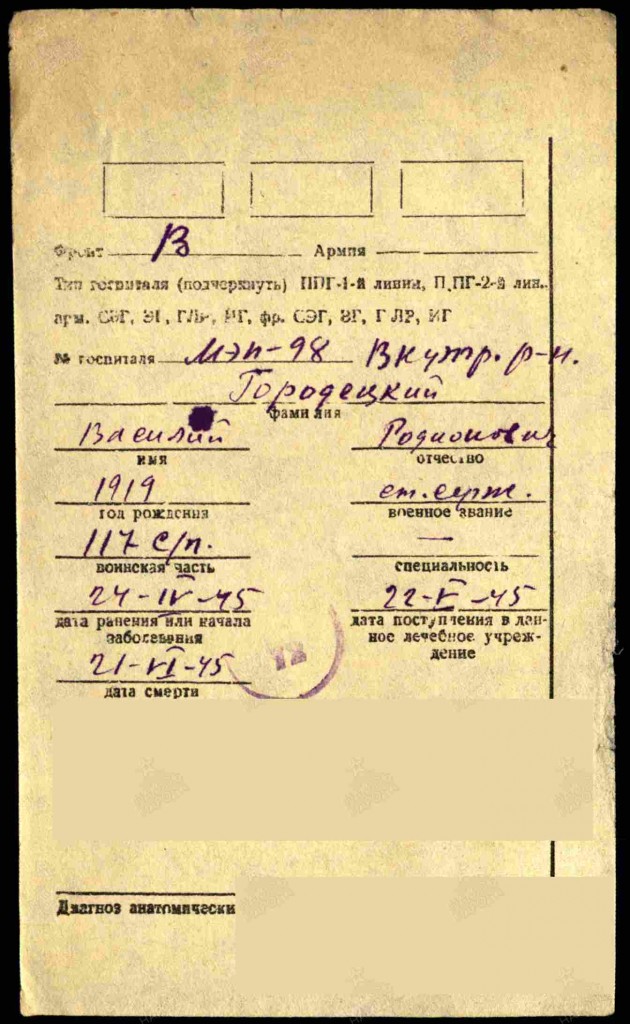 Фронт В Армия
Тип госпиталя (подчеркнуть) ППГ-1-й линии, П,ПГ-2-й лин.
арм. СЭГ, ЭГ, ГЛР, ИГ, фр. СЭГ, ЭГ, ГЛР, ИГ
№ госпиталя МЭП-98 Внутр. р-н.
Городецкий
фамилия
Василий Родионович
имя отчество
1919 ст. серж.
год рождения военное звание
117 с/п. —
воинская часть специальность
24-IV-45 22-V-45
дата ранения или начала дата поступления в дан-
заболевания ное лечебное учреж-
дение
21-VI-45
дата смерти
Диагноз анатомически